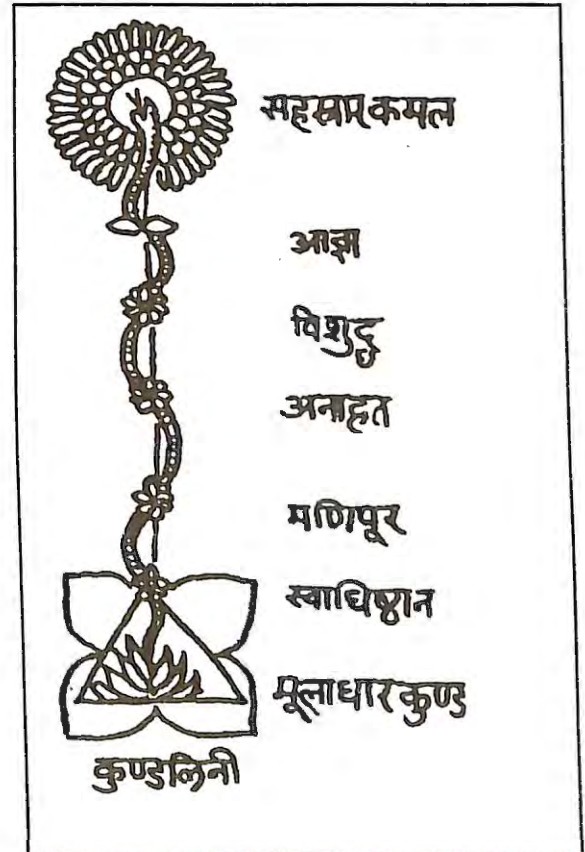 सहस्रार कमल
आज्ञा
विशुद्ध
अनाहत
मणिपूर
स्वाधिष्ठान
मूलाधार कुण्ड
कुण्डलिनी